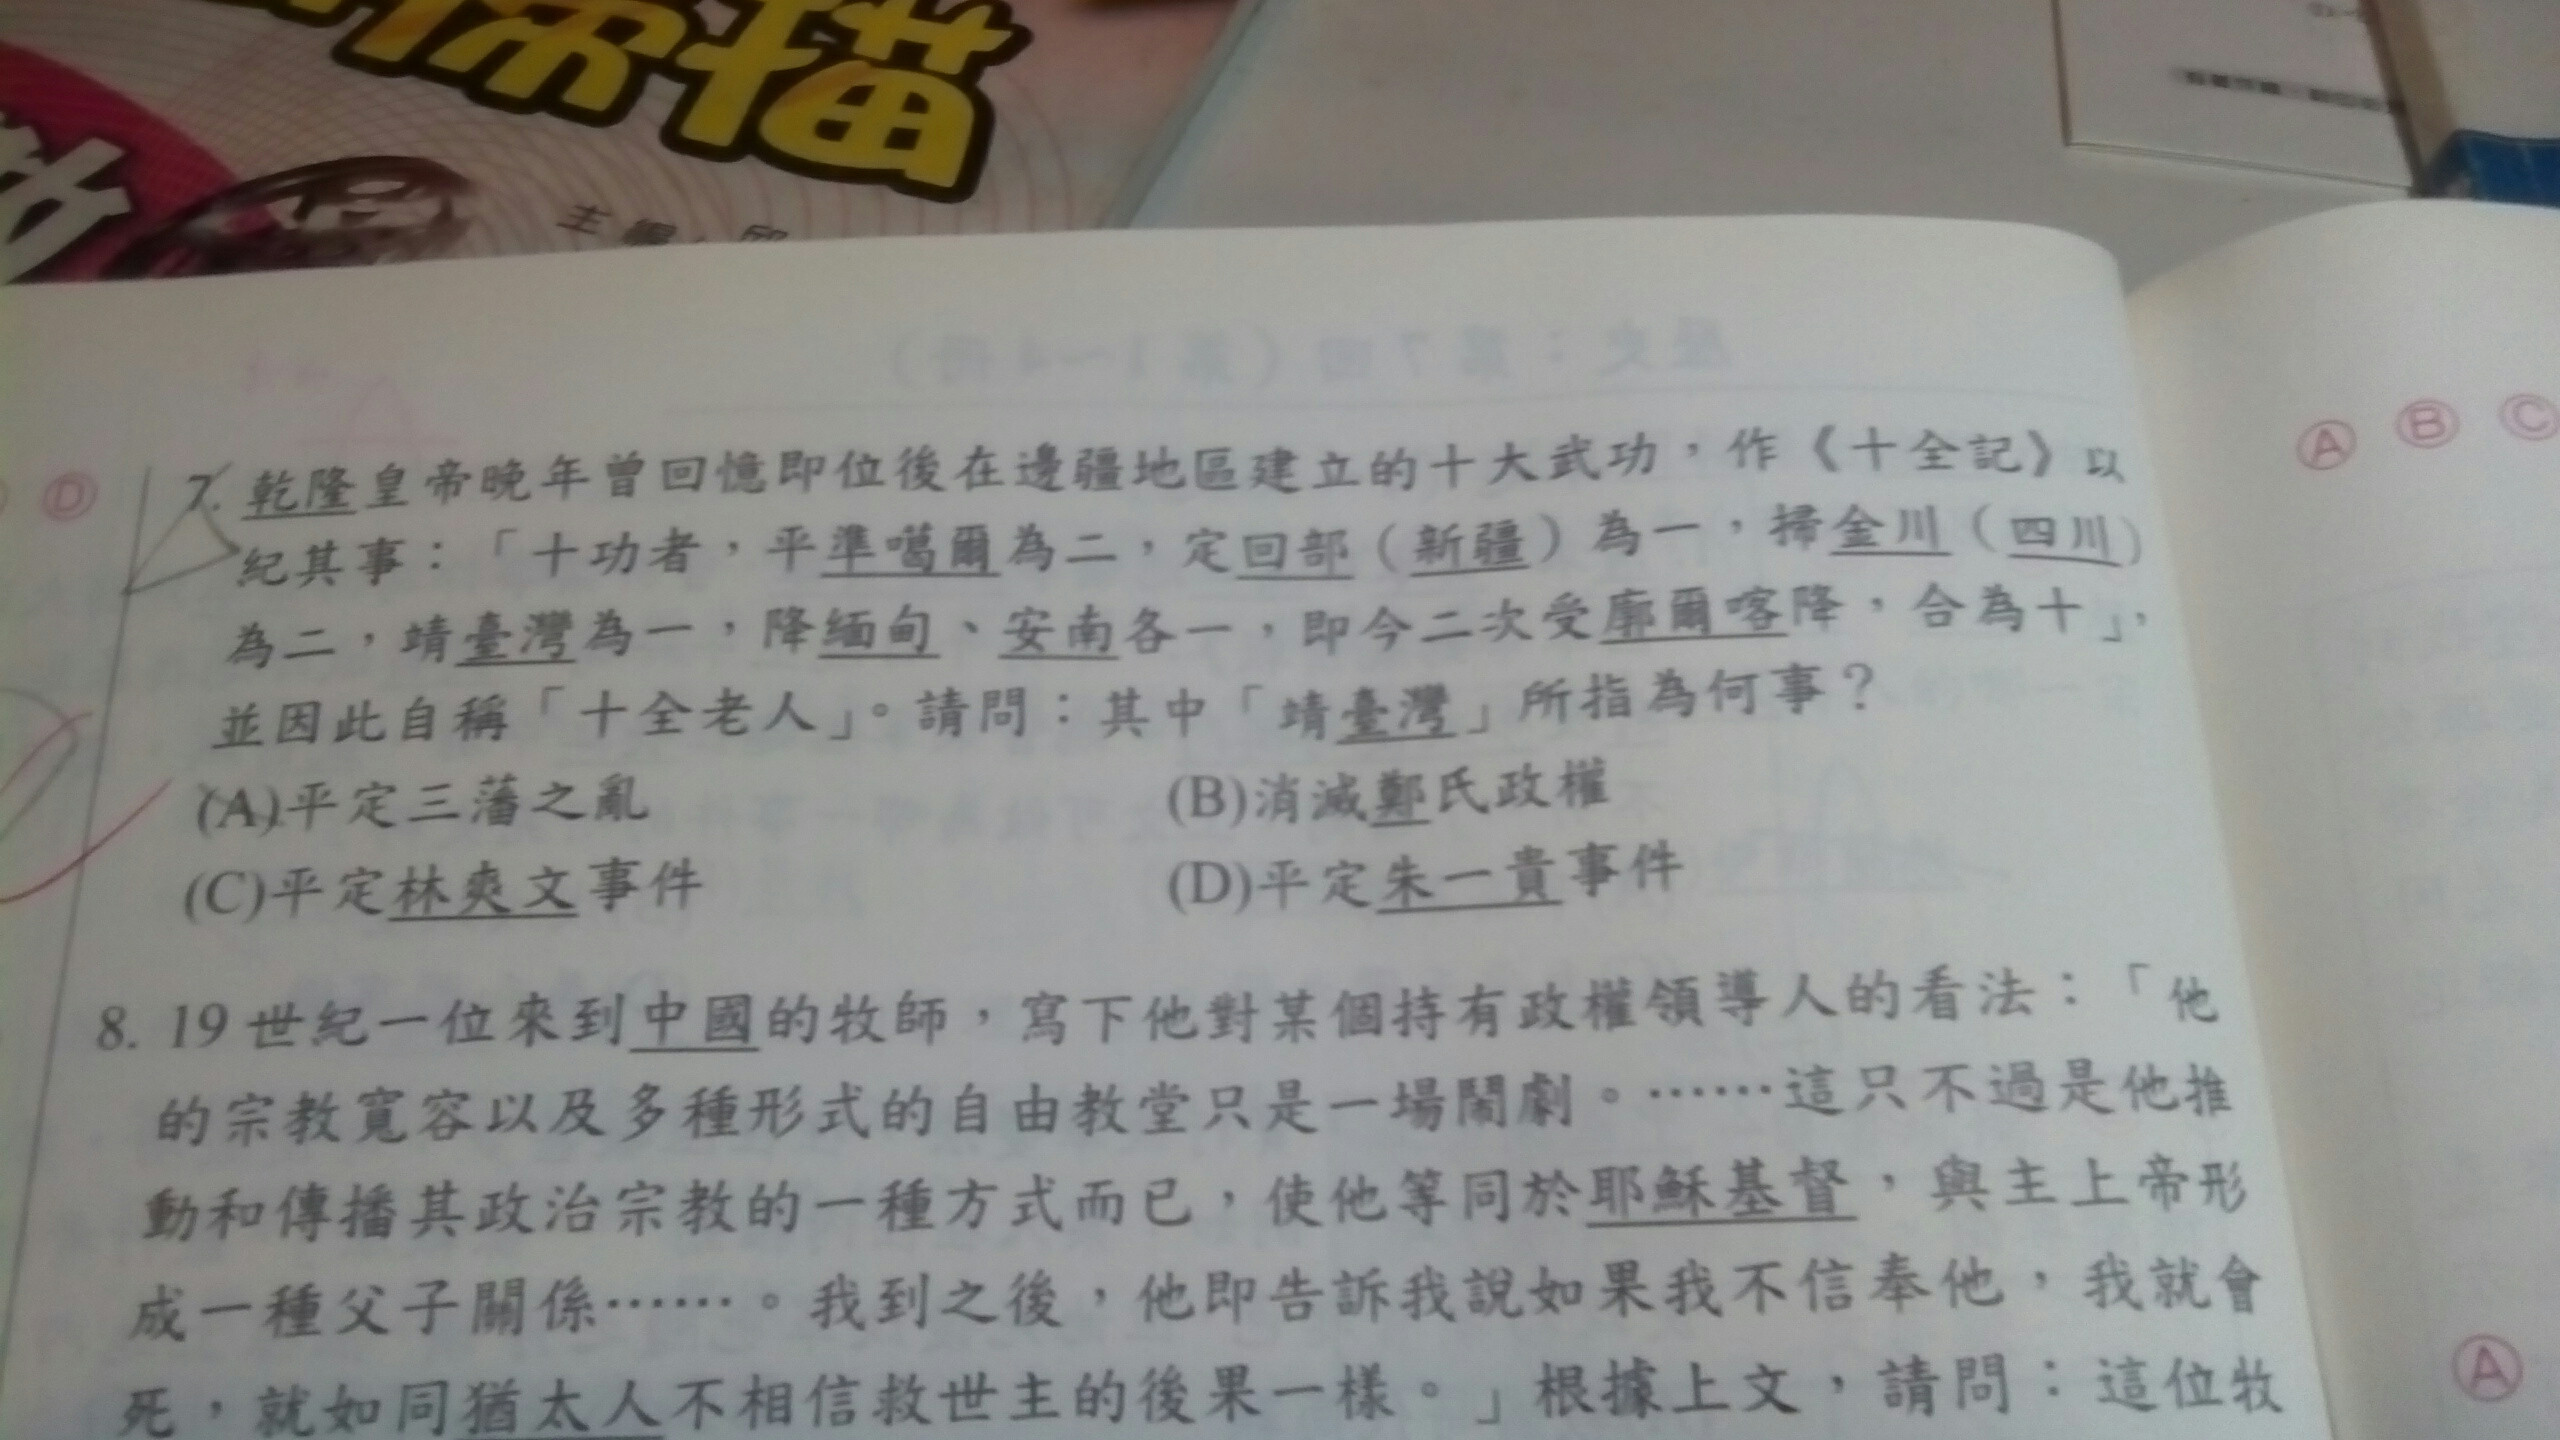 描
主編
7. 乾隆皇帝晚年曾回憶即位後在邊疆地區建立的十大武功，作《十全記》以
紀其事：「十功者，平準噶爾為二，定回部（新疆）為一，掃金川（四川）
為二，靖臺灣為一，降緬甸、安南各一，即今二次受廓爾喀降，合為十」，
並因此自稱「十全老人」。請問：其中「靖臺灣」所指為何事？
(A)平定三藩之亂 (B)消滅鄭氏政權
(C)平定林爽文事件 (D)平定朱一貴事件
8. 19世紀一位來到中國的牧師，寫下他對某個持有政權領導人的看法：「他
的宗教寬容以及多種形式的自由教堂只是一場鬧劇。……這只不過是他推
動和傳播其政治宗教的一種方式而已，使他等同於耶穌基督，與主上帝形
成一種父子關係……。我到之後，他即告訴我說如果我不信奉他，我就會
死，就如同猶太人不相信救世主的後果一樣。」根據上文，請問：這位牧
D
A B C
A